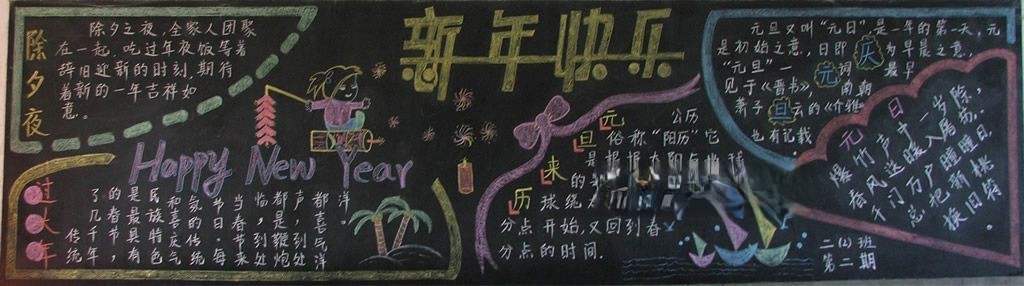 除夕夜
除夕之夜,全家人团聚
在一起,吃过年夜饭等着
辞旧迎新的时刻,期待
着新的一年吉祥如
意。
新年快乐
Happy New Year
过大年
传统
了几千年,
的春节
是最具有
民族特色
和喜庆气
氛的传统
节日.每
当春节来
临,到处
都是鞭炮
声,到处
都喜气洋
洋
元旦来历
公历
俗称"阳历"它
是根据太阳
的
球绕
分点开始,又回到春
分点的时间.
庆元旦
元旦又叫"元日"是一年的第一天,元
是初始之意,日即为早晨之意.
"元旦"一词最早
见于《晋书》,南朝
萧子云的《介雅》
也有记载
元日
爆竹声中一岁除,
春风送暖入屠苏.
千门万户曈曈日,
总把新桃
换旧符.
二(2)班
第二期